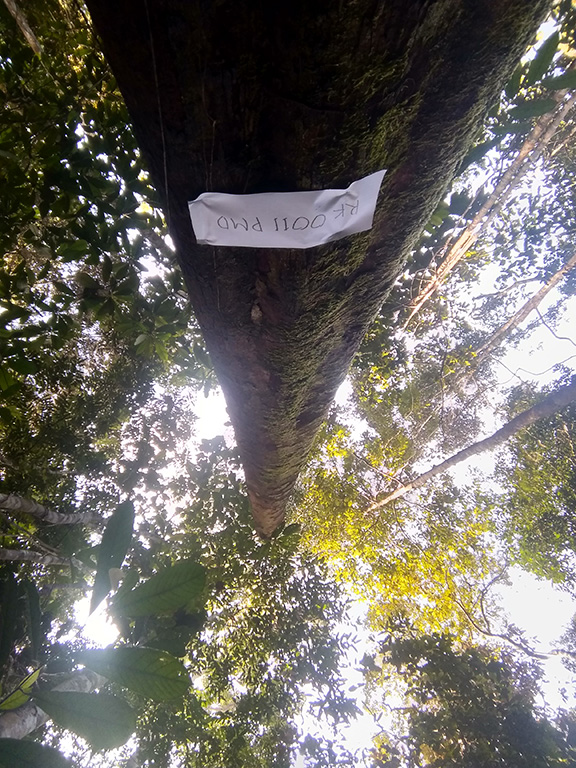 RK 0011 PMD